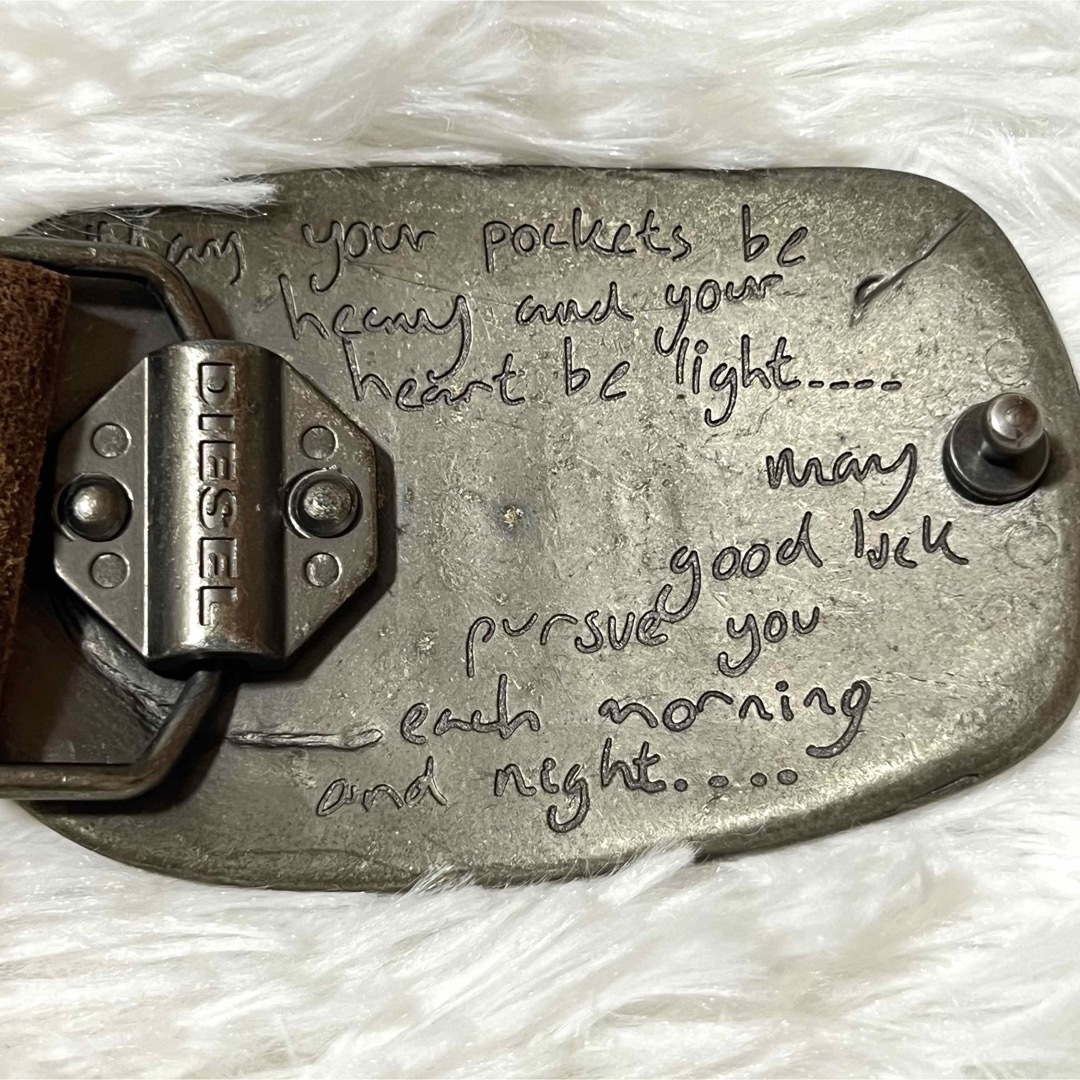 may your pockets be
heavy and your
heart be light....
may
good luck
pursue you
each morning
and night.....
DIESEL